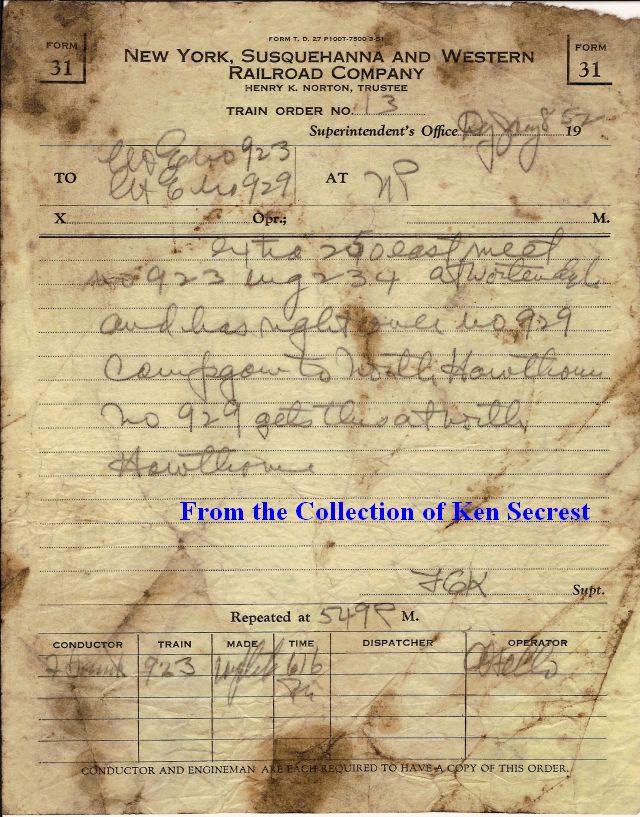 FORM T. D. 27 P100T-7500 3-51
FORM
31
FORM
31
NEW YORK, SUSQUEHANNA AND WESTERN
RAILROAD COMPANY
HENRY K. NORTON, TRUSTEE
TRAIN ORDER NO. 13
Superintendent's Office 8 1952
TO
923
929
AT NP
X Opr.; M.
extra 250 east meet
no 923 eng 234 at
and has right over no 929
Campgaw to North Hawthorne
no 929 gets this at north
Hawthorne
From the Collection of Ken Secrest
Supt.
Repeated at 549P M.
CONDUCTOR TRAIN MADE TIME DISPATCHER OPERATOR
923 616
CONDUCTOR AND ENGINEMAN ARE EACH REQUIRED TO HAVE A COPY OF THIS ORDER.